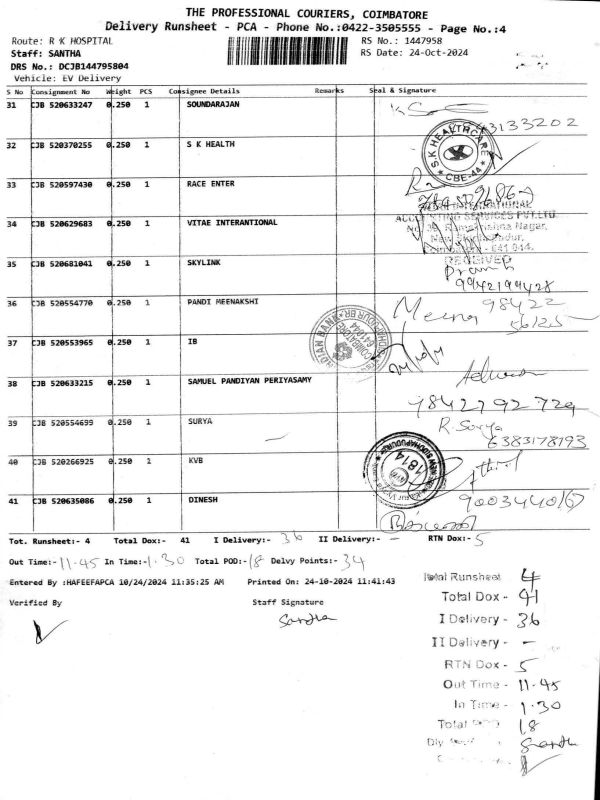 THE PROFESSIONAL COURIERS, COIMBATORE
Delivery Runsheet - PCA - Phone No.:0422-3505555 - Page No.:4
Route: R K HOSPITAL RS No.: 1447958
Staff: SANTHA RS Date: 24-Oct-2024
DRS No.: DCJB144795804
Vehicle: EV Delivery
S No Consignment No Weight PCS Consignee Details Remarks Seal & Signature
31 CJB 520633247 0.250 1 SOUNDARAJAN
32 CJB 520370255 0.250 1 S K HEALTH
S.K HEALTHCARE CBE-44
33 CJB 520597430 0.250 1 RACE ENTER
34 CJB 520629683 0.250 1 VITAE INTERANTIONAL
ACCOUNTING SERVICES PVT.LTD.
Ramakrishna Nagar,
- 641 044.
RECEIVED
35 CJB 520681041 0.250 1 SKYLINK
9942199428
36 CJB 520554770 0.250 1 PANDI MEENAKSHI
Meena 98422
56125
37 CJB 520553965 0.250 1 IB
INDIAN BANK COIMBATORE 641044
38 CJB 520633215 0.250 1 SAMUEL PANDIYAN PERIYASAMY
9842792729
39 CJB 520554699 0.250 1 SURYA
R. Surya
6383178193
40 CJB 520266925 0.250 1 KVB
1814
41 CJB 520635086 0.250 1 DINESH
9003440167
Tot. Runsheet:- 4 Total Dox:- 41 I Delivery:- 36 II Delivery:- — RTN Dox:- 5
Out Time:- 11.45 In Time:- 1.30 Total POD:- 18 Delvy Points:- 34
Entered By :HAFEEFAPCA 10/24/2024 11:35:25 AM Printed On: 24-10-2024 11:41:43
Verified By Staff Signature
Santha
Total Runsheet 4
Total Dox - 41
I Delivery - 36
II Delivery - —
RTN Dox - 5
Out Time - 11.45
In Time - 1.30
Total POD 18
Santha